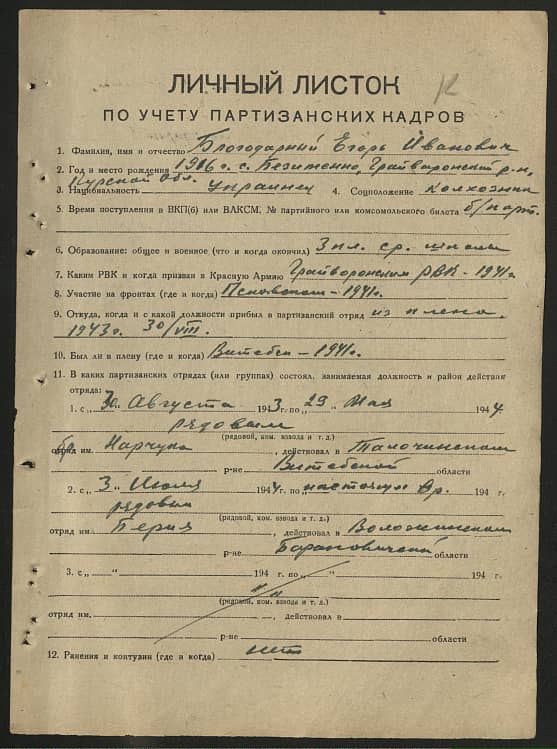 ЛИЧНЫЙ ЛИСТОК
ПО УЧЕТУ ПАРТИЗАНСКИХ КАДРОВ
1. Фамилия, имя и отчество Благодарный Егор Иванович
2. Год и место рождения 1916 г. с. Безименно, Грайворонский р-н,
Курской обл.
3. Национальность украинец 4. Соцположение колхозник
5. Время поступления в ВКП(б) или ВЛКСМ, № партийного или комсомольского билета б/парт.
6. Образование: общее и военное (что и когда окончил) 3 кл. ср. школы
7. Каким РВК и когда призван в Красную Армию Грайворонским РВК - 1941 г.
8. Участие на фронтах (где и когда) 1941 г.
9. Откуда, когда и с какой должности прибыл в партизанский отряд из плена,
1943 г. 30/VIII.
10. Был ли в плену (где и когда) Витебск - 1941 г.
11. В каких партизанских отрядах (или группах) состоял, занимаемая должность и район действия
отряда:
1. с „30" Августа 1943 г. по „29" Мая 1944
рядовым
(рядовой, ком. взвода и т. д.)
бр. отряд им. Марчука, действовал в Толочинском
р-не Витебской области
2. с „3" Июля 1944 г. по „настоящ. вр. 194 г.
рядовым
(рядовой, ком. взвода и т. д.)
отряд им. Берия, действовал в Воложинском
р-не Барановичской области
3. с „ " 194 г. по „ " 194 г.
(рядовой, ком. взвода и т. д.)
отряд им. , действовал в
р-не области
12. Ранения и контузии (где и когда) нет